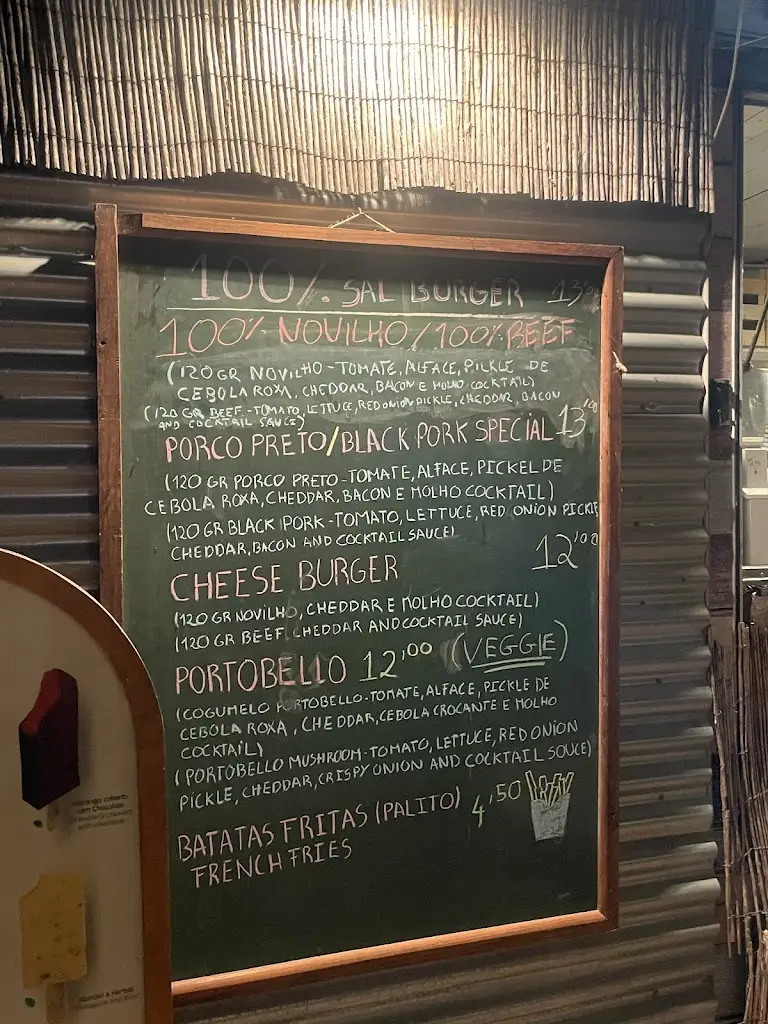 100% SAL BURGER 13,00
100% NOVILHO / 100% BEEF
(120 GR NOVILHO - TOMATE, ALFACE, PICKLE DE
CEBOLA ROXA, CHEDDAR, BACON E MOLHO COCKTAIL)
(120 GR BEEF - TOMATO, LETTUCE, RED ONION PICKLE, CHEDDAR, BACON
AND COCKTAIL SAUCE)
PORCO PRETO/BLACK PORK SPECIAL 13,00
(120 GR PORCO PRETO - TOMATE, ALFACE, PICKEL DE
CEBOLA ROXA, CHEDDAR, BACON E MOLHO COCKTAIL)
(120 GR BLACK PORK - TOMATO, LETTUCE, RED ONION PICKLE
CHEDDAR, BACON AND COCKTAIL SAUCE)
CHEESE BURGER 12,00
(120 GR NOVILHO, CHEDDAR E MOLHO COCKTAIL)
(120 GR BEEF, CHEDDAR AND COCKTAIL SAUCE)
PORTOBELLO 12,00 (VEGGIE)
(COGUMELO PORTOBELLO - TOMATE, ALFACE, PICKLE DE
CEBOLA ROXA, CHEDDAR, CEBOLA CROCANTE E MOLHO
COCKTAIL)
(PORTOBELLO MUSHROOM - TOMATO, LETTUCE, RED ONION
PICKLE, CHEDDAR, CRISPY ONION AND COCKTAIL SOUCE)
BATATAS FRITAS (PALITO) 4,50
FRENCH FRIES
coberto
com Chocolate